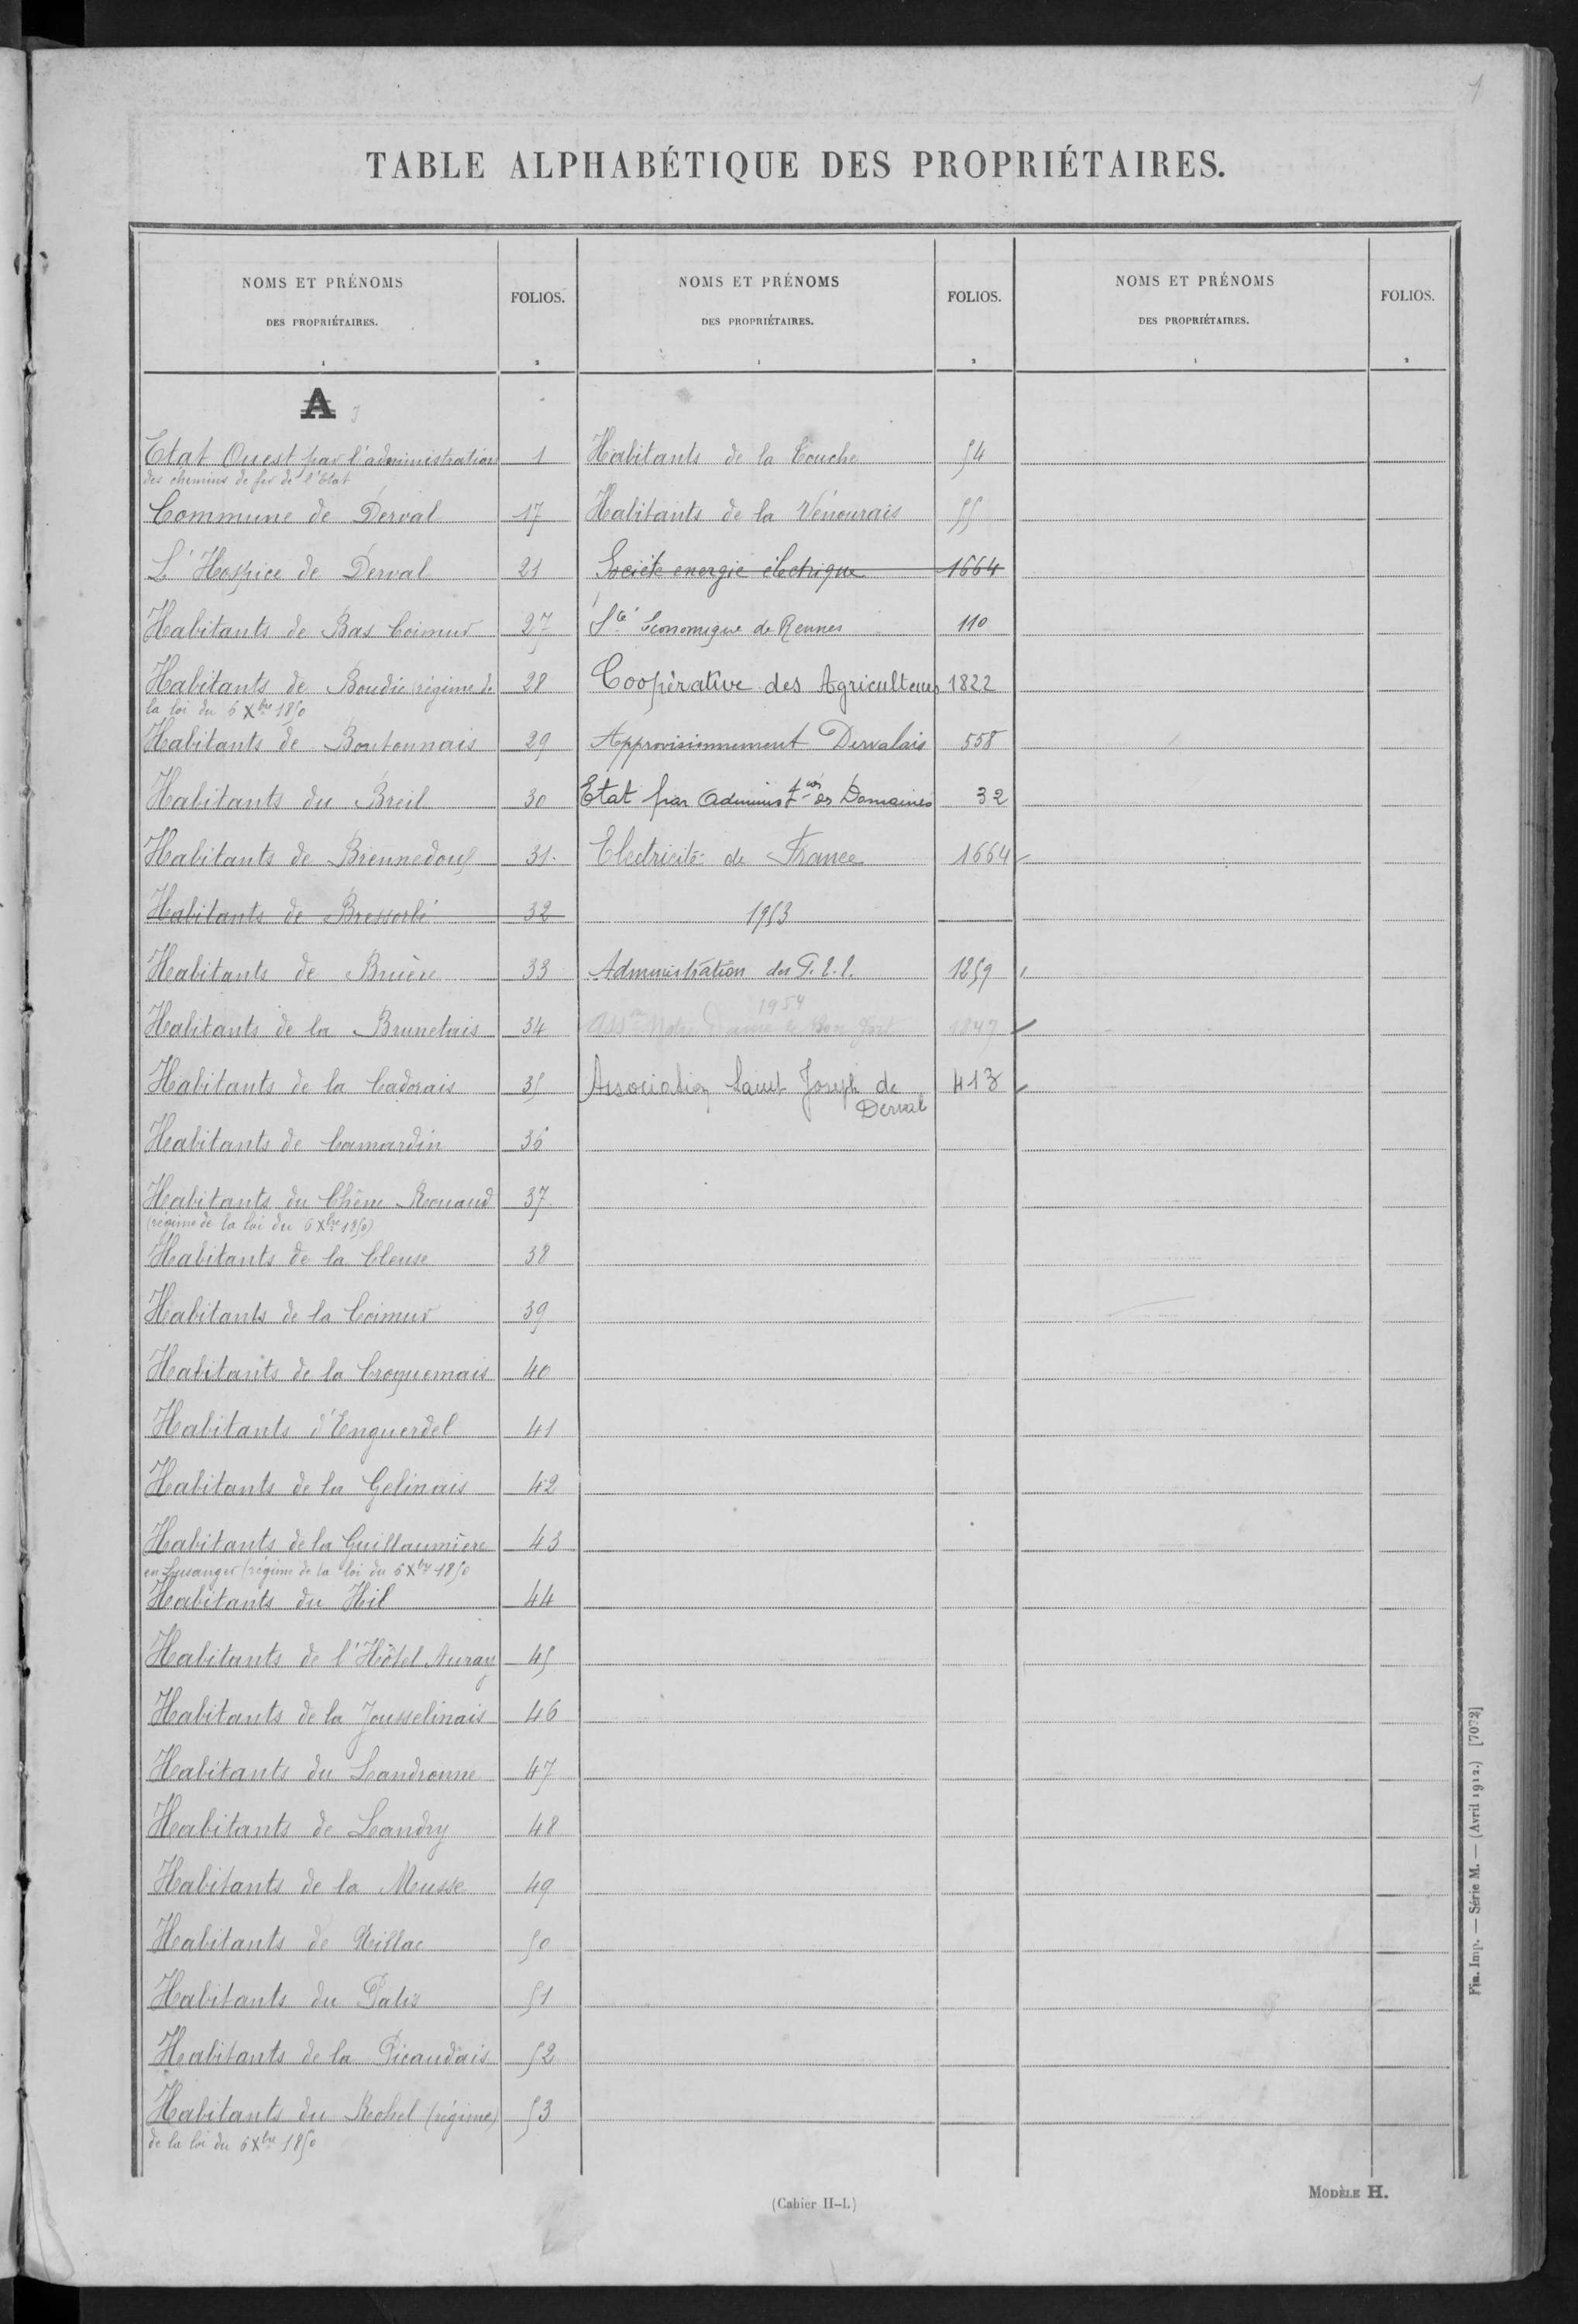 1
TABLE ALPHABÉTIQUE DES PROPRIÉTAIRES.
NOMS ET PRÉNOMS
DES PROPRIÉTAIRES.
1
FOLIOS.
2
NOMS ET PRÉNOMS
DES PROPRIÉTAIRES.
1
FOLIOS.
2
NOMS ET PRÉNOMS
DES PROPRIÉTAIRES.
1
FOLIOS.
2
A
Etat Ouest par l'administration 1
des chemins de fer de l'Etat
Commune de Derval 17
L'Hospice de Derval 21
Habitants de Bas Coimur 27
Habitants de Boudie régime de 28
la loi du 6 Xbre 1850
Habitants de Boutonnais 29
Habitants du Breil 30
Habitants de Briennedouf 31.
Habitants de Bressorbé 32
Habitants de Bruère 33
Habitants de la Brunetais 34
Habitants de la Cadorais 35
Habitants de Camardin 36
Habitants du Chêne Rouaud 37
(régime de la loi du 6 Xbre 1850)
Habitants de la Cleuse 38
Habitants de la Coimur 39
Habitants de la Croquemais 40
Habitants d'Enguerdel 41
Habitants de la Gelinais 42
Habitants de la Guillaumière 43
en Lusanger (régime de la loi du 6 Xbre 1850
Habitants du Hil 44
Habitants de l'Hôtel Auray 45
Habitants de la Jousselinais 46
Habitants du Landronne 47
Habitants de Landry 48
Habitants de la Musse 49
Habitants de Nillac 50
Habitants du Patis 51
Habitants de la Picaudais 52
Habitants du Rohel (régime) 53
de la loi du 6 Xbre 1850
Habitants de la Touche 54
Habitants de la Vénourais 55
Société energie électrique 1664
Sté Economique de Rennes 110
Coopérative des Agriculteurs 1822
Approvisionnement Dervalais 558
Etat par Administ-ion des Domaines 32
Electricité de France 1664
1953
Administration des P.T.T. 1259
1954
Assn Notre Dame de Bon Port 1847
Association Saint Joseph de 413
Derval
Fin. Imp. — Série M. — (Avril 1912.) [7072]
(Cahier H-L)
MODÈLE H.